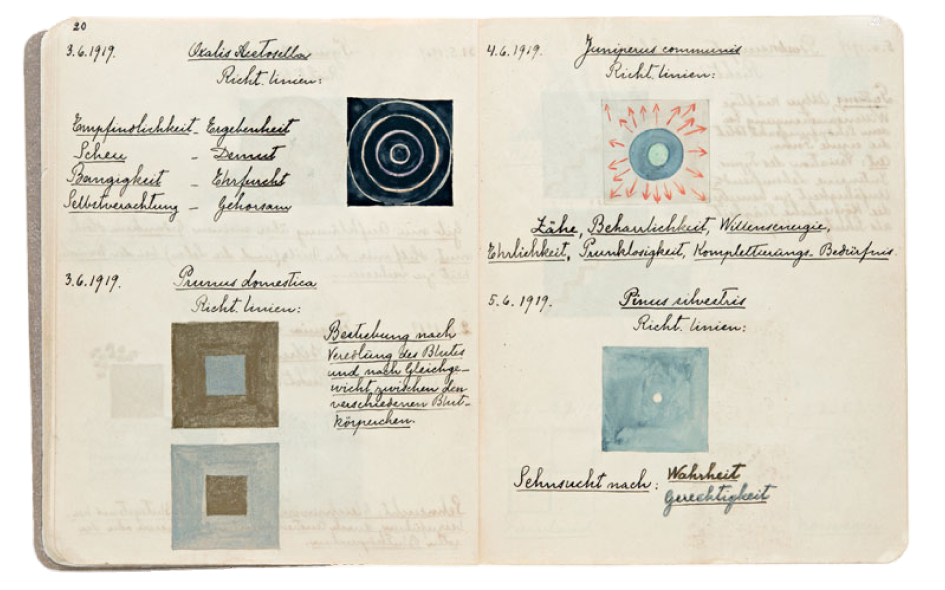 20
3.6.1919.
Oxalis Acetosella
Richt.linien:
Empfindlichkeit - Ergebenheit
Scheu - Demut
Bangigkeit - Ehrfurcht
Selbstverachtung - Gehorsam
3.6.1919.
Prunus domestica
Richt.linien:
Bestrebung nach
Veredlung des Blutes
und nach Gleichge-
wicht zwischen den
verschiedenen Blut-
körperchen.
4.6.1919.
Juniperus communis
Richt.linien:
Zähe, Beharrlichkeit, Willensenergie,
Ehrlichkeit, Prunklosigkeit, Komplettierungs-Bedürfnis.
5.6.1919.
Pinus silvestris
Richt.linien:
Sehnsucht nach: Wahrheit
Gerechtigkeit